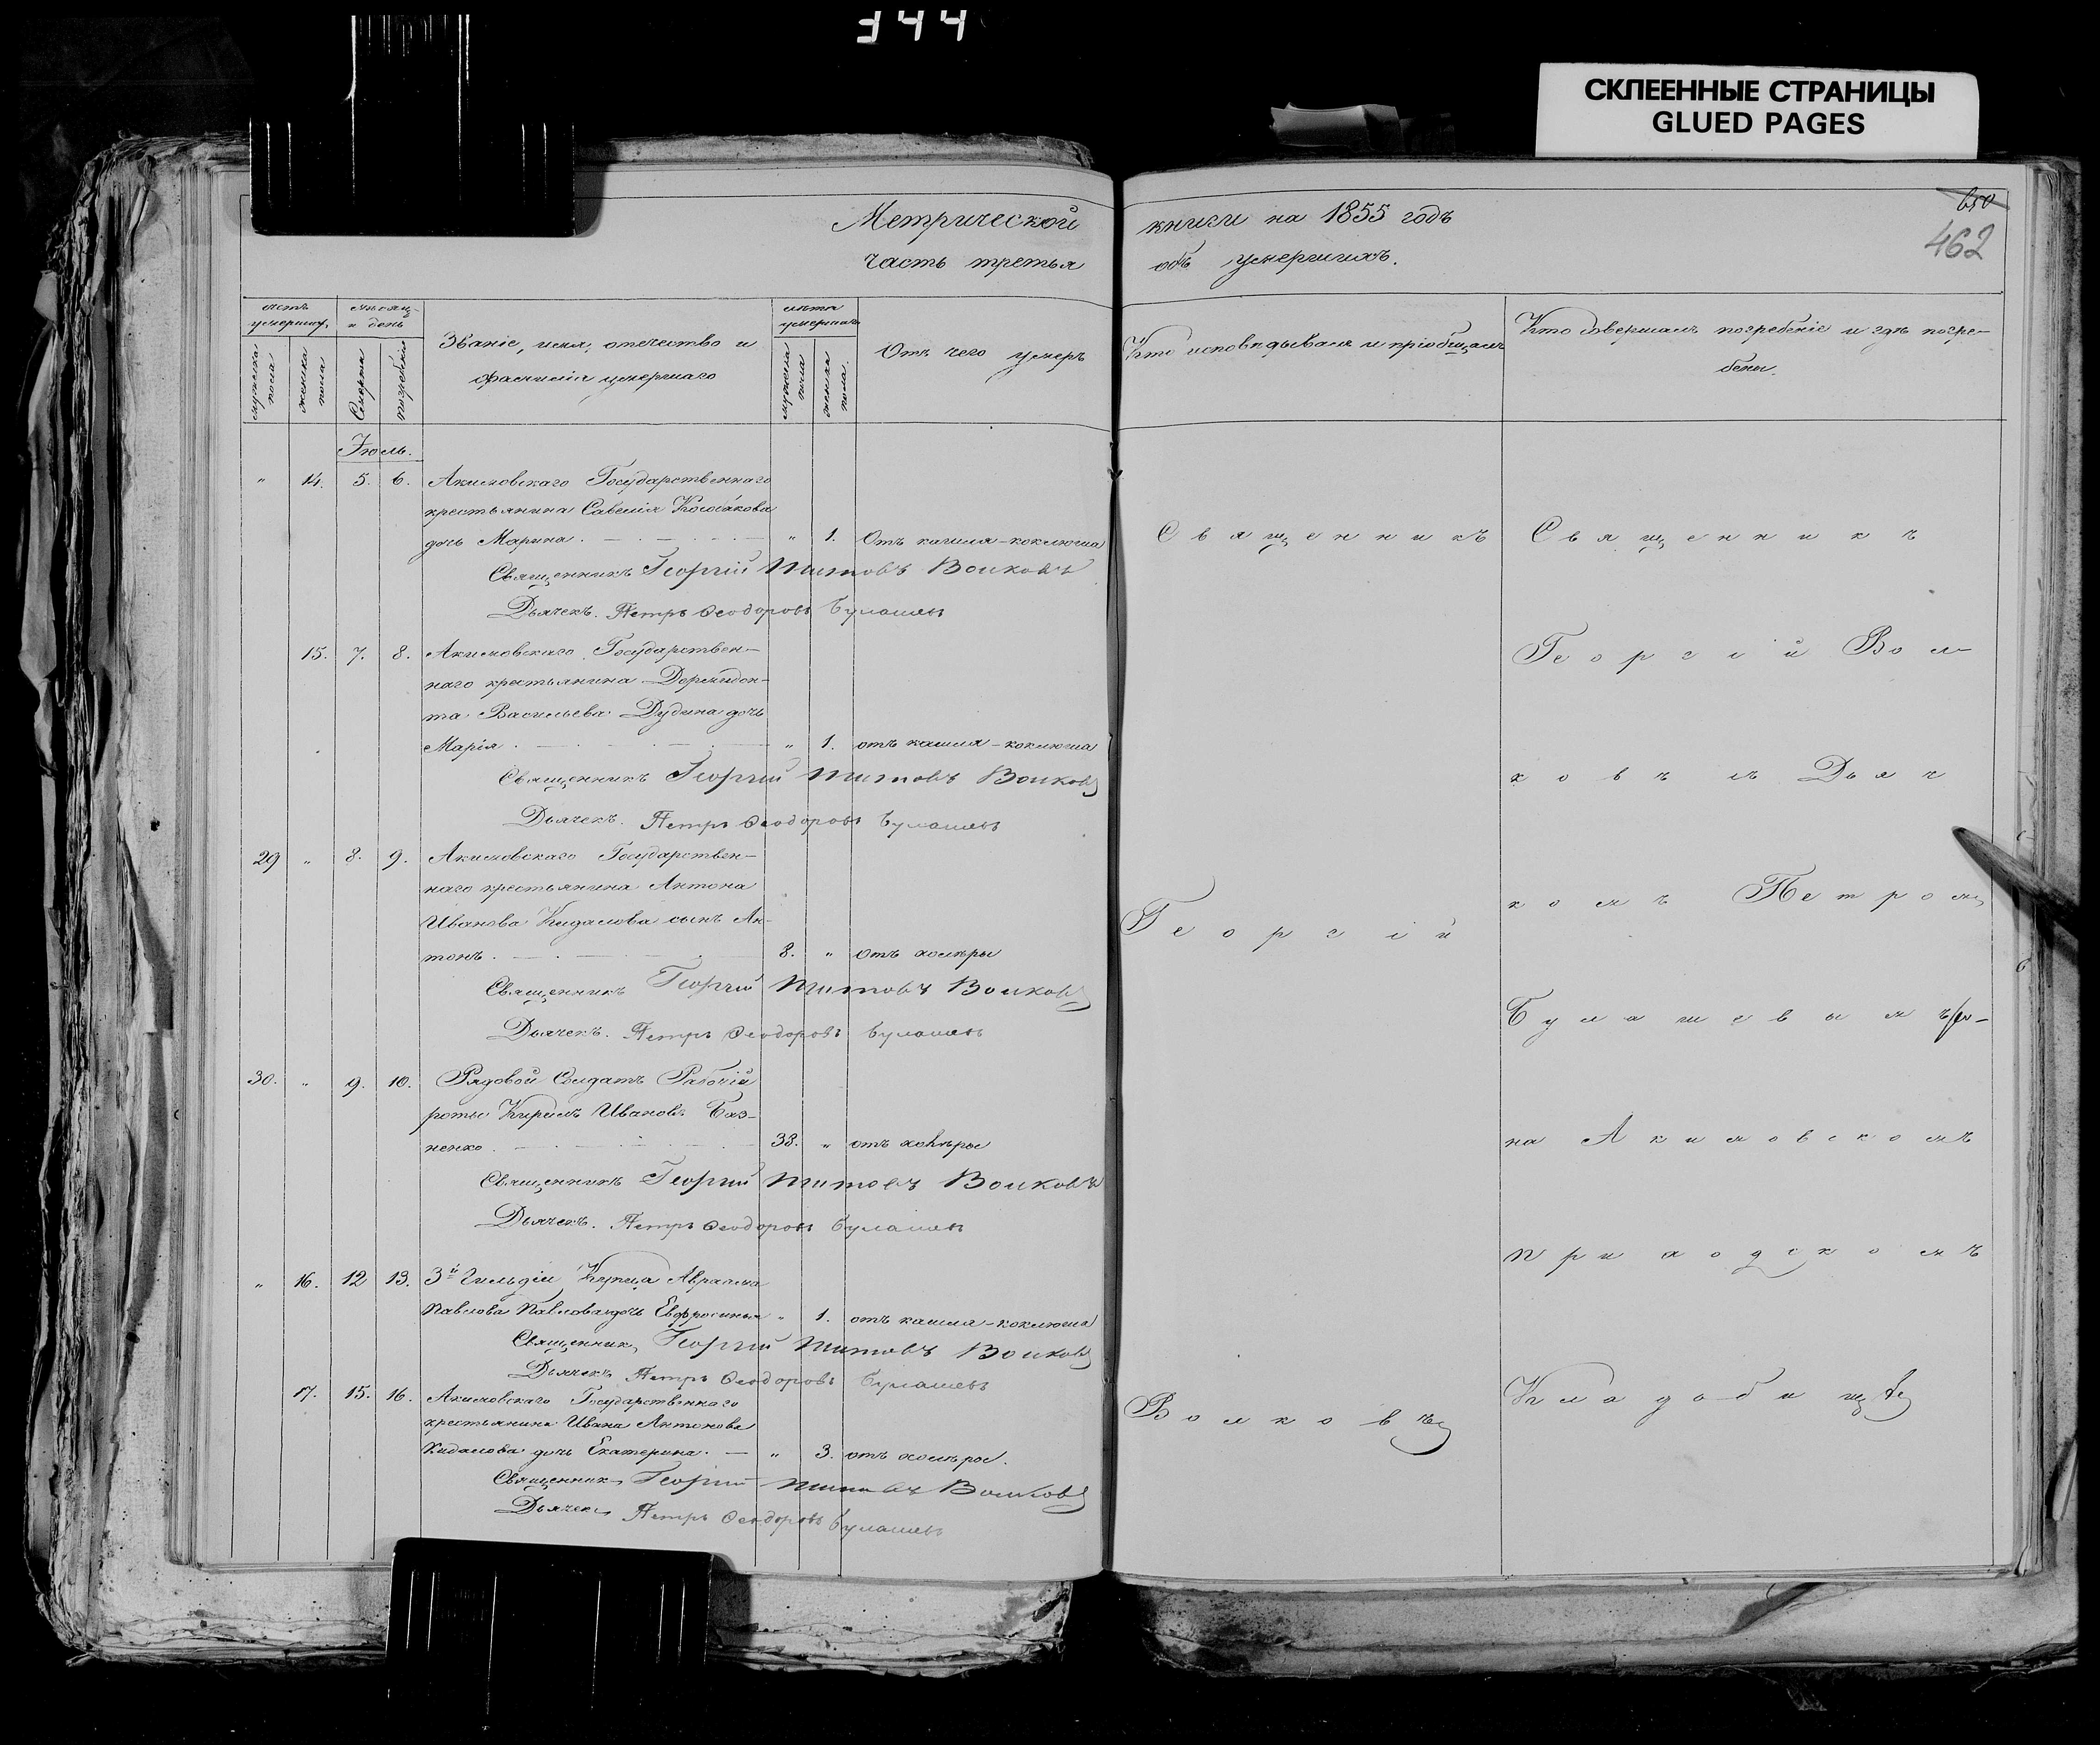 344
СКЛЕЕННЫЕ СТРАНИЦЫ
GLUED PAGES
650
462
Метрической книги на 1855 годъ
часть третья объ умершихъ.
мужеска пола
женска пола
Смерти
погребенія
Званіе, имя, отечество и
фамилія умершаго
лѣта
умершаго
мужеска пола
женска пола.
Отъ чего умеръ
Кто исповѣдывалъ и пріобщалъ
Кто совершалъ погребеніе и гдѣ погре-
бены.
Іюль.
" 14. 5. 6. Акимовскаго Государственнаго
крестьянина Савелія
дочь Марина. " 1. Отъ кашля-коклюша
Священникъ Георгій Титовъ Волковъ
Дьячекъ. Петръ Ѳеодоровъ Булашевъ
15. 7. 8. Акимовскаго Государствен-
наго крестьянина Дормидон-
та Васильева Дудина дочь
Марія. " 1. отъ кашля-коклюша
Священникъ Георгій Титовъ Волковъ
Дьячекъ. Петръ Ѳеодоровъ Булашевъ
29 " 8. 9. Акимовскаго Государствен-
наго крестьянина Антона
Иванова Кидалова сынъ Ан-
тонъ. 8. " Отъ холѣры
Священникъ Георгій Титовъ Волковъ
Дьячекъ. Петръ Ѳеодоровъ Булашевъ
30. " 9. 10. Рядовой Солдатъ Рабочій
роты Кирилъ Ивановъ Баз-
ненко. 33. " отъ холѣры
Священникъ Георгій Титовъ Волковъ
Дьячекъ. Петръ Ѳеодоровъ Булашевъ
" 16. 12 13. 3й Гильдіи Купца Авраама
Павлова Павлова дочь Евфросинья " 1. отъ кашля-коклюша
Священникъ Георгій Титовъ Волковъ
Дьячекъ Петръ Ѳеодоровъ Булашевъ
17. 15. 16. Акимовскаго Государственнаго
крестьянина Ивана Антонова
Кидалова дочь Екатерина. " 3. отъ холѣры.
Священникъ Георгій Титовъ Волковъ
Дьячекъ Петръ Ѳеодоровъ Булашевъ
Священникъ
Георгій
Волковъ
Священникъ
Георгій Вол-
ковъ съ Дьяч
комъ Петромъ
Булашевымъ
на Акимовскомъ
приходскомъ
Кладбищѣ